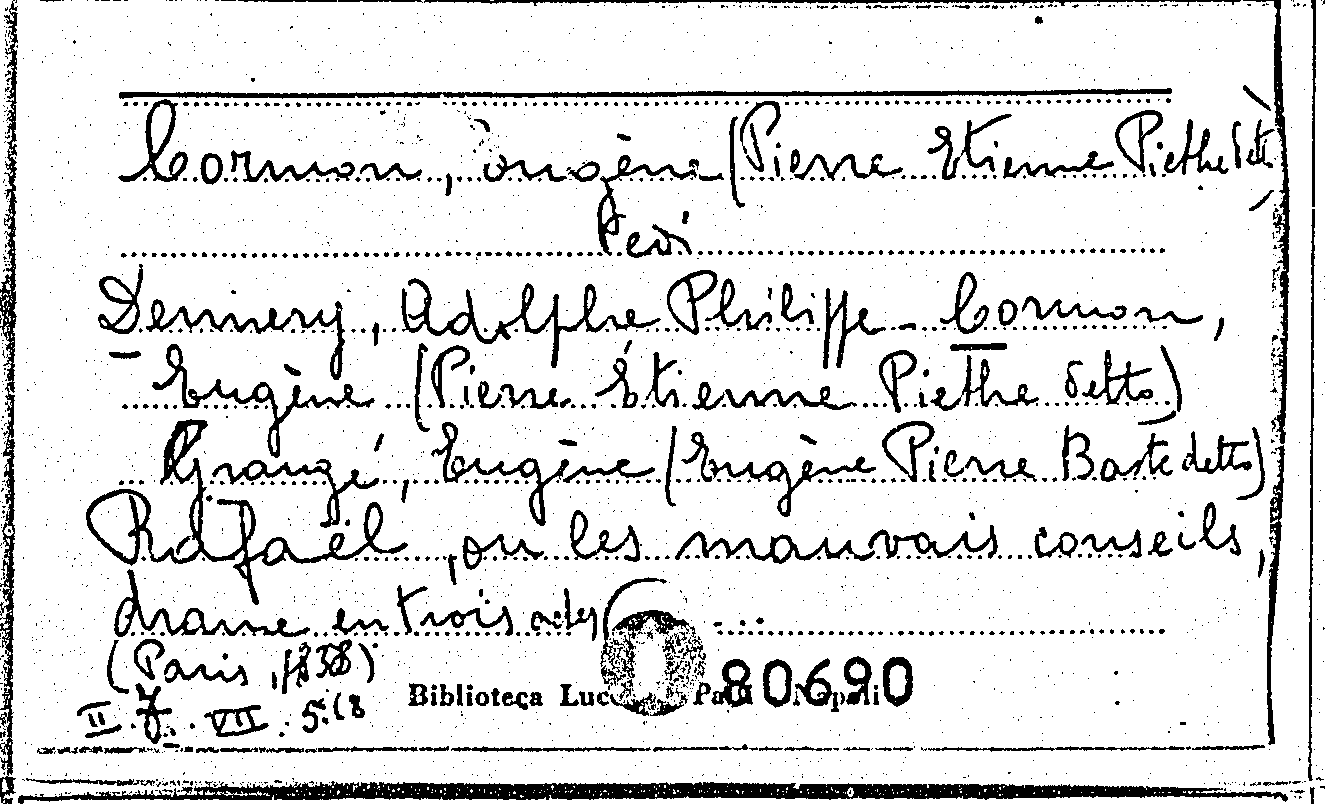 Cormon, Eugène (Pierre Etienne Piethe detto)
Vedi
Dennery, Adolphe Philippe - Cormon,
Eugène (Pierre Étienne Piethe detto)
Grangé, Eugène (Eugène Pierre Baste detto)
Rafaël, ou les mauvais conseils,
drame en trois actes ...
(Paris, 1838)
II. J. VII. 5.(8
Biblioteca Lucchesi Palli Napoli 80690